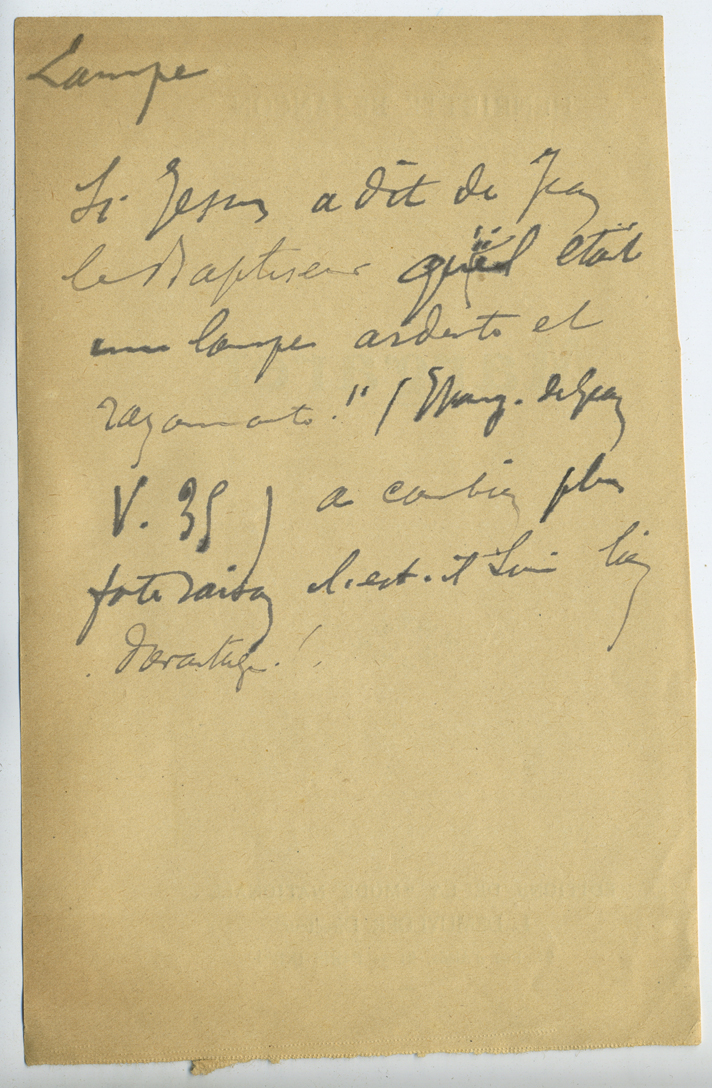 Lampe
Si Jésus a dit de Jean
le Baptiseur qu'il était
"une lampe ardente et
rayonnante." (Evang. de Jean
V. 35) à combien plus
forte raison l'est-il Lui bien
davantage!